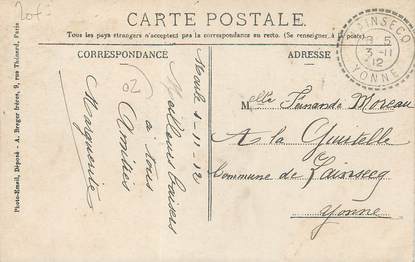 20f
CARTE POSTALE.
Tous les pays étrangers n'acceptent pas la correspondance au recto. (Se renseigner à la poste).
CORRESPONDANCE
ADRESSE
Photo-Email, Déposé - A. Breger frères, 9, rue Thénard, Paris
02
1-11-12
Meilleurs baisers
à tous
Amitiés
Marguerite
AINSECQ
5
3-11
12
YONNE
Melle Fernande Moreau
A la
Commune de Lainsecq
Yonne